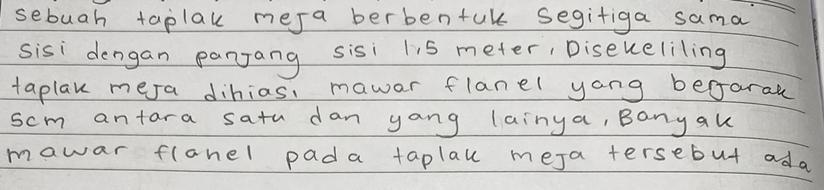 sebuah taplak meja berbentuk segitiga sama
sisi dengan panjang sisi 1,5 meter, Disekeliling
taplak meja dihiasi mawar flanel yang berjarak
5cm antara satu dan yang lainya, Banyak
mawar flanel pada taplak meja tersebut ada